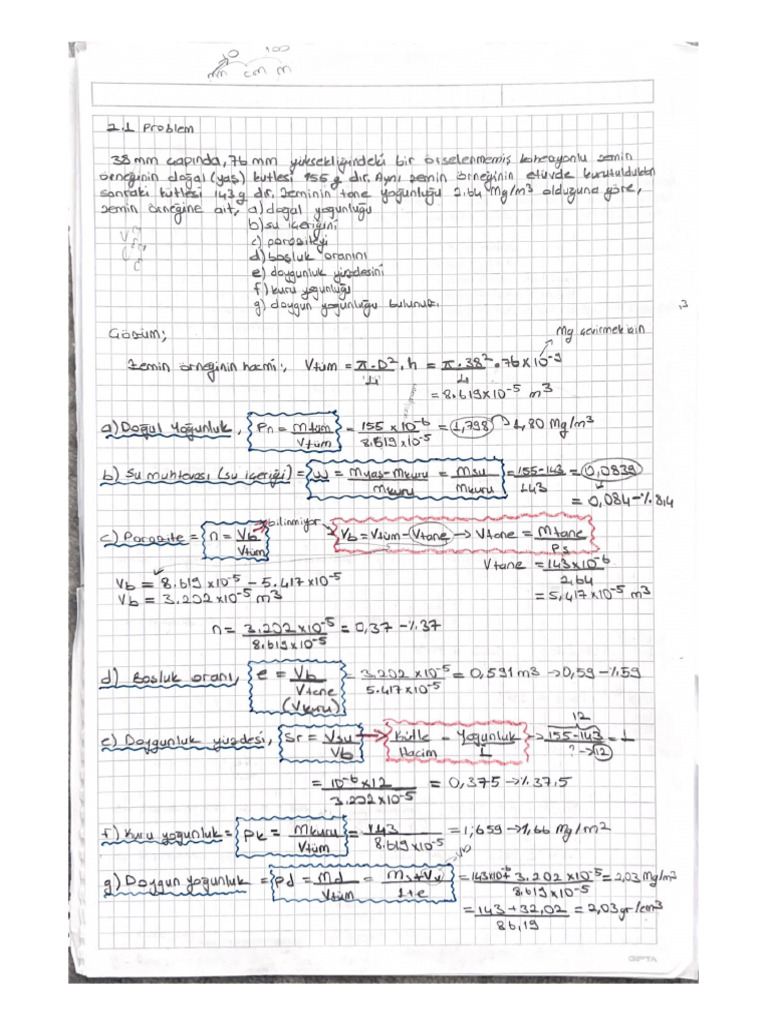 10 100
mm cm m
2.1 Problem
38 mm çapında, 76 mm yüksekliğindeki bir örselenmemiş kohezyonlu zemin
örneğinin doğal (yaş) kütlesi 155 g dır. Aynı zemin örneğinin etüvde kurutulduktan
sonraki kütlesi 143 g dır. Zeminin tane yoğunluğu 2.64 Mg/m3 olduğuna göre,
zemin örneğine ait, a) doğal yoğunluğu
b) su içeriğini
c) porozite
d) boşluk oranını
e) doygunluk yüzdesini
f) kuru yoğunluğu
g) doygun yoğunluğu bulunuz.
Çözüm;
Mg çevirmek için
Zemin örneğinin hacmi; Vtüm = π.D²/4 . h = π.38²/4 . 76 x 10^-9
= 8.619x10^-5 m³
a) Doğal Yoğunluk, Pn = mtüm/Vtüm = 155 x 10^-6/8.619x10^-5 = 1,798 1,80 Mg/m³
b) Su muhtevası (su içeriği) = w = Myaş-Mkuru/Mkuru = Msu/Mkuru = 155-143/143 = 0,0839
= 0,084-%8,4
bilinmiyor
c) Porozite = n = Vb/Vtüm Vb = Vtüm - Vtane → Vtane = Mtane/Ps
Vtane = 143x10^-6/2.64
= 5,417x10^-5 m³
Vb = 8.619 x10^-5 - 5.417x10^-5
Vb = 3.202x10^-5 m³
n = 3.202x10^-5/8.619x10^-5 = 0,37 -%37
d) Boşluk oranı, e = Vb/Vtane (Vkuru) = 3.202 x10^-5/5.417x10^-5 = 0,591 m3 → 0,59 -%59
12
e) Doygunluk yüzdesi, Sr = Vsu/Vb → Kütle/Hacim = Yoğunluk/1 → 155-143/? → 12 = 1
= 10^-6 x12/3.202x10^-5 = 0,375 → %37.5
f) Kuru yoğunluk = Pk = Mkuru/Vtüm = 143/8.619x10^-5 = 1,659 → 1,66 Mg/m²
g) Doygun yoğunluk = Pd = Md/Vtüm = = 143x10^-6 + 3.202 x10^-5/8.619x10^-5 = 2,03 Mg/m²
= 143+32,02/86,19 = 2,03 gr/cm³
GIPTA